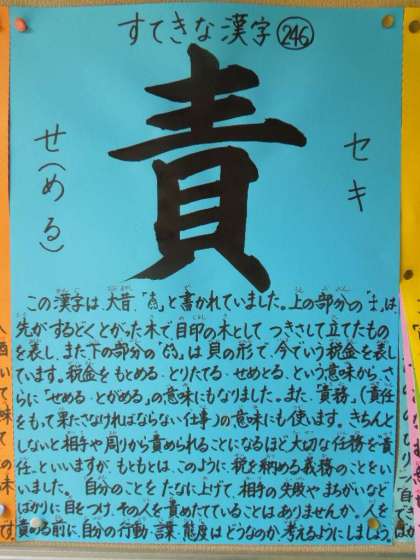 すてきな漢字 246
責
セキ
せ(める)
この漢字は、大昔、「」と書かれていました。上の部分の「」は、
先がするどくとがった木で目印の木としてつきさして立てたもの
を表し、また下の部分の「」は貝の形で、今でいう税金を表し
ています。税金をもとめる・とりたてる・せめとる、という意味から、さ
らに「せめる・とがめる」の意味にもなりました。また、「責務」(責任
をもって果たさなければならない仕事)の意味にも使います。きちんと
しないと相手や周りから責められることになるほど大切な任務を「責
任」といいますが、もともとは、このように、税を納める義務のことをい
いました。自分のことをたなに上げて、相手の失敗やまちがいなど
ばかりに目をつけ、その人を責めたてていることはありませんか。人を
責める前に、自分の行動・言葉・態度はどうなのか、考えるようにしましょう。